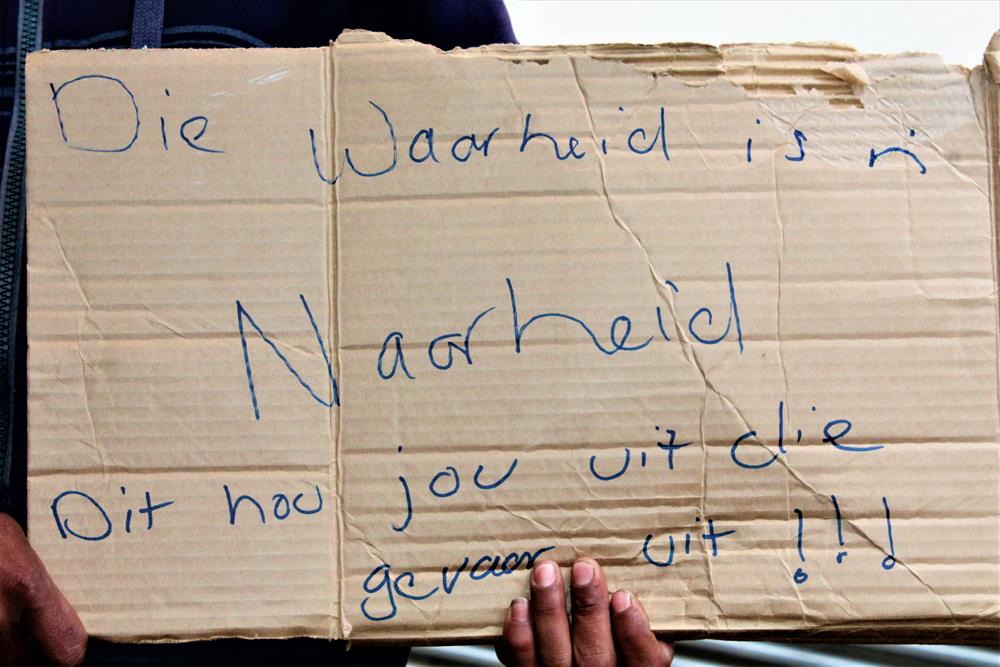 Die Waarheid is 'n
Naarheid
Dit hou jou uit die
gevaar uit !!!